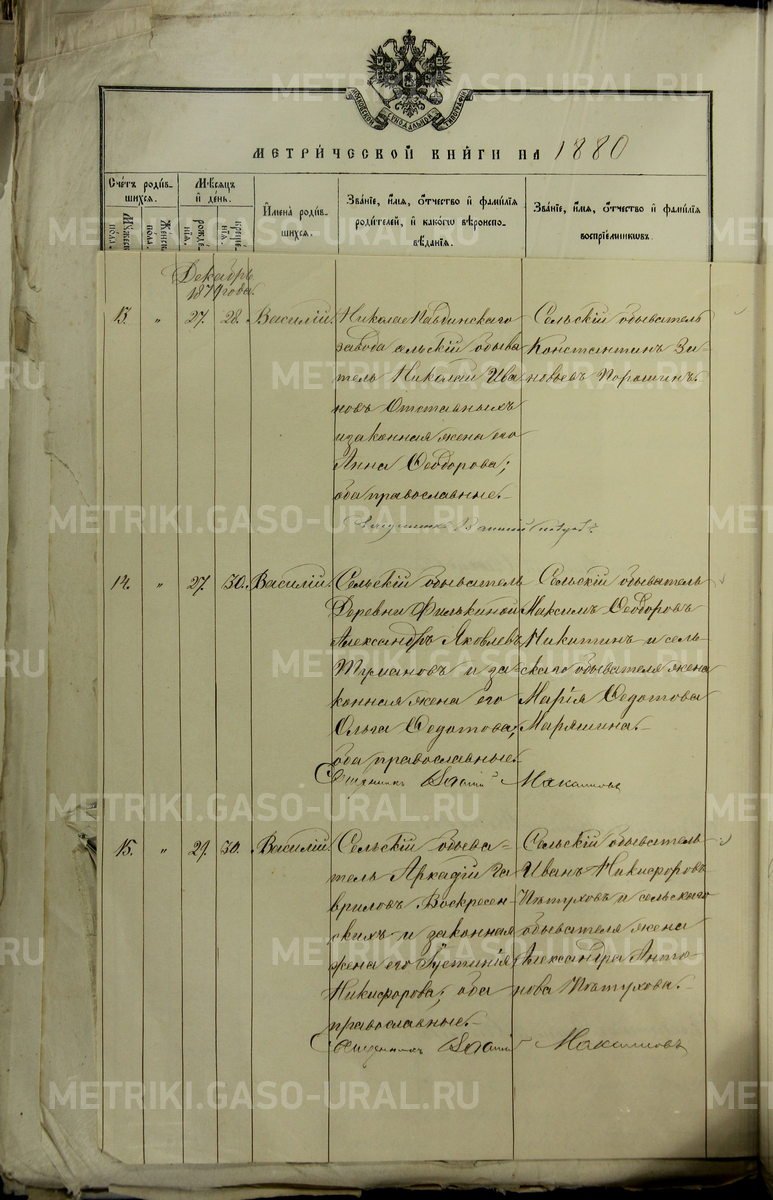 МОСКОВСКОЙ СѴНОДАЛЬНОЙ ТИПОГРАФІИ
МЕТРИЧЕСКОЙ КНИГИ НА 1880
Счетъ родив-
шихся.
Мужеска
пола.
Женска
пола.
Мѣсяцъ
и день.
рожде-
нія.
креще-
нія.
Имена родив-
шихся.
Званіе, имя, отчество и фамилія
родителей, и какого вѣроиспо-
вѣданія.
Званіе, имя, отчество и фамилія
воспріемниковъ.
Декабрь
1879 года.
13. " 27. 28. Василій.
Николае Павдинскаго
завода сельскій обыва
тель Николай Ива
новъ Отставныхъ
и законная жена его
Анна Ѳеодорова;
оба православные.
Сельскій обыватель
Константинъ Зи-
новьевъ Порошинъ.
14. " 27. 30. Василій.
Сельскій обыватель
Деревни Филькиной
Александръ Яковлевъ
Тумановъ и за-
конная жена его
Ольга Ѳедотова;
оба православные.
Сельскій обыватель
Максимъ Ѳеодоровъ
Никитинъ и сель-
скаго обывателя жена
Марія Ѳедотова
Маряшина.
Священникъ Макаimовъ
15. " 29. 30. Василій.
Сельскій обыва-
тель Аркадій Га
вриловъ Воскресен-
скихъ и законная
жена его Іустинія
Никифорова; оба
православные.
Сельскій обыватель
Иванъ Никифоровъ
Пѣтуховъ и сельскаго
обывателя жена
Александра Анто
нова Пѣтухова.
Священникъ
METRIKI.GASO-URAL.RU